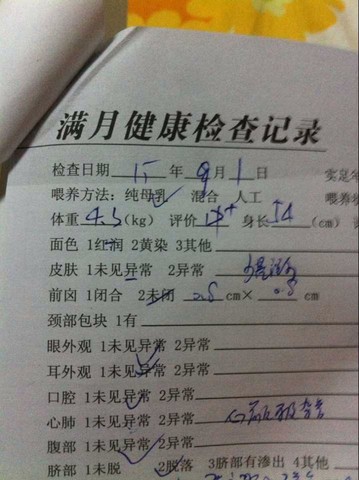 满月健康检查记录
检查日期 15 年 9 月 1 日 实足年
喂养方法: 纯母乳 混合 人工 喂养
体重 4.5 (kg) 评价 中+ 身长 54 (cm)
面色 1红润 2黄染 3其他
皮肤 1未见异常 2异常
前囟 1闭合 2未闭 0.8 cm× 0.8 cm
颈部包块 1有
眼外观 1未见异常 2异常
耳外观 1未见异常 2异常
口腔 1未见异常 2异常
心肺 1未见异常 2异常 心前区杂音
腹部 1未见异常 2异常
脐部 1未脱 2脱落 3脐部有渗出 4其他